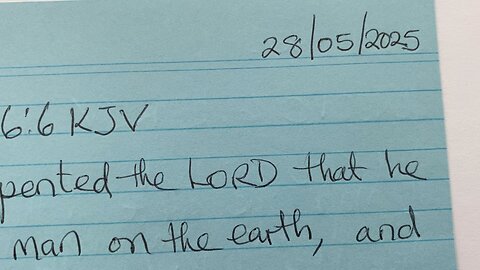 28/05/2025
6:6 KJV
pented the LORD that he
man on the earth, and